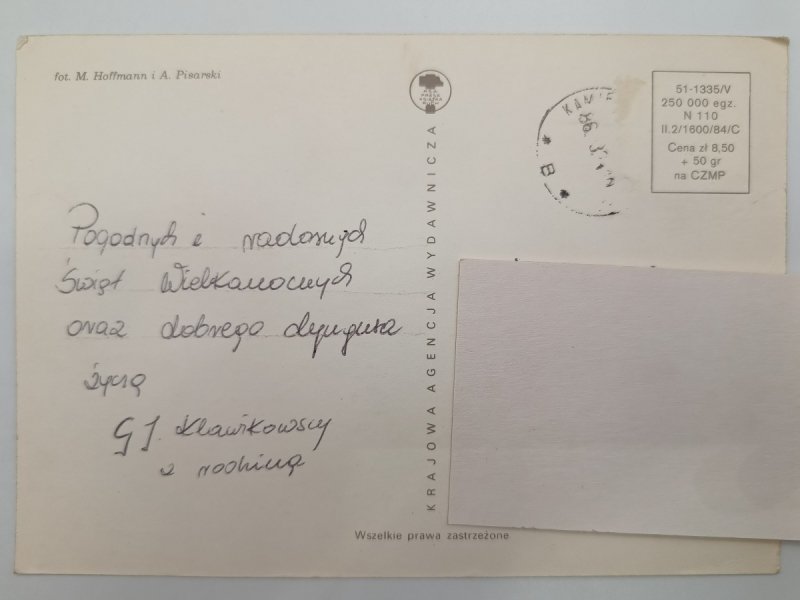 fot. M. Hoffmann i A. Pisarski
RSW
PRASA
KSIĄŻKA
RUCH
51-1335/V
250 000 egz.
N 110
II.2/1600/84/C
Cena zł 8,50
+ 50 gr
na CZMP
86
* B *
KRAJOWA AGENCJA WYDAWNICZA
Pogodnych i radosnych
Świąt Wielkanocnych
oraz dobrego dyngusa
życzą
G J. Klawikowscy
z rodziną
Wszelkie prawa zastrzeżone